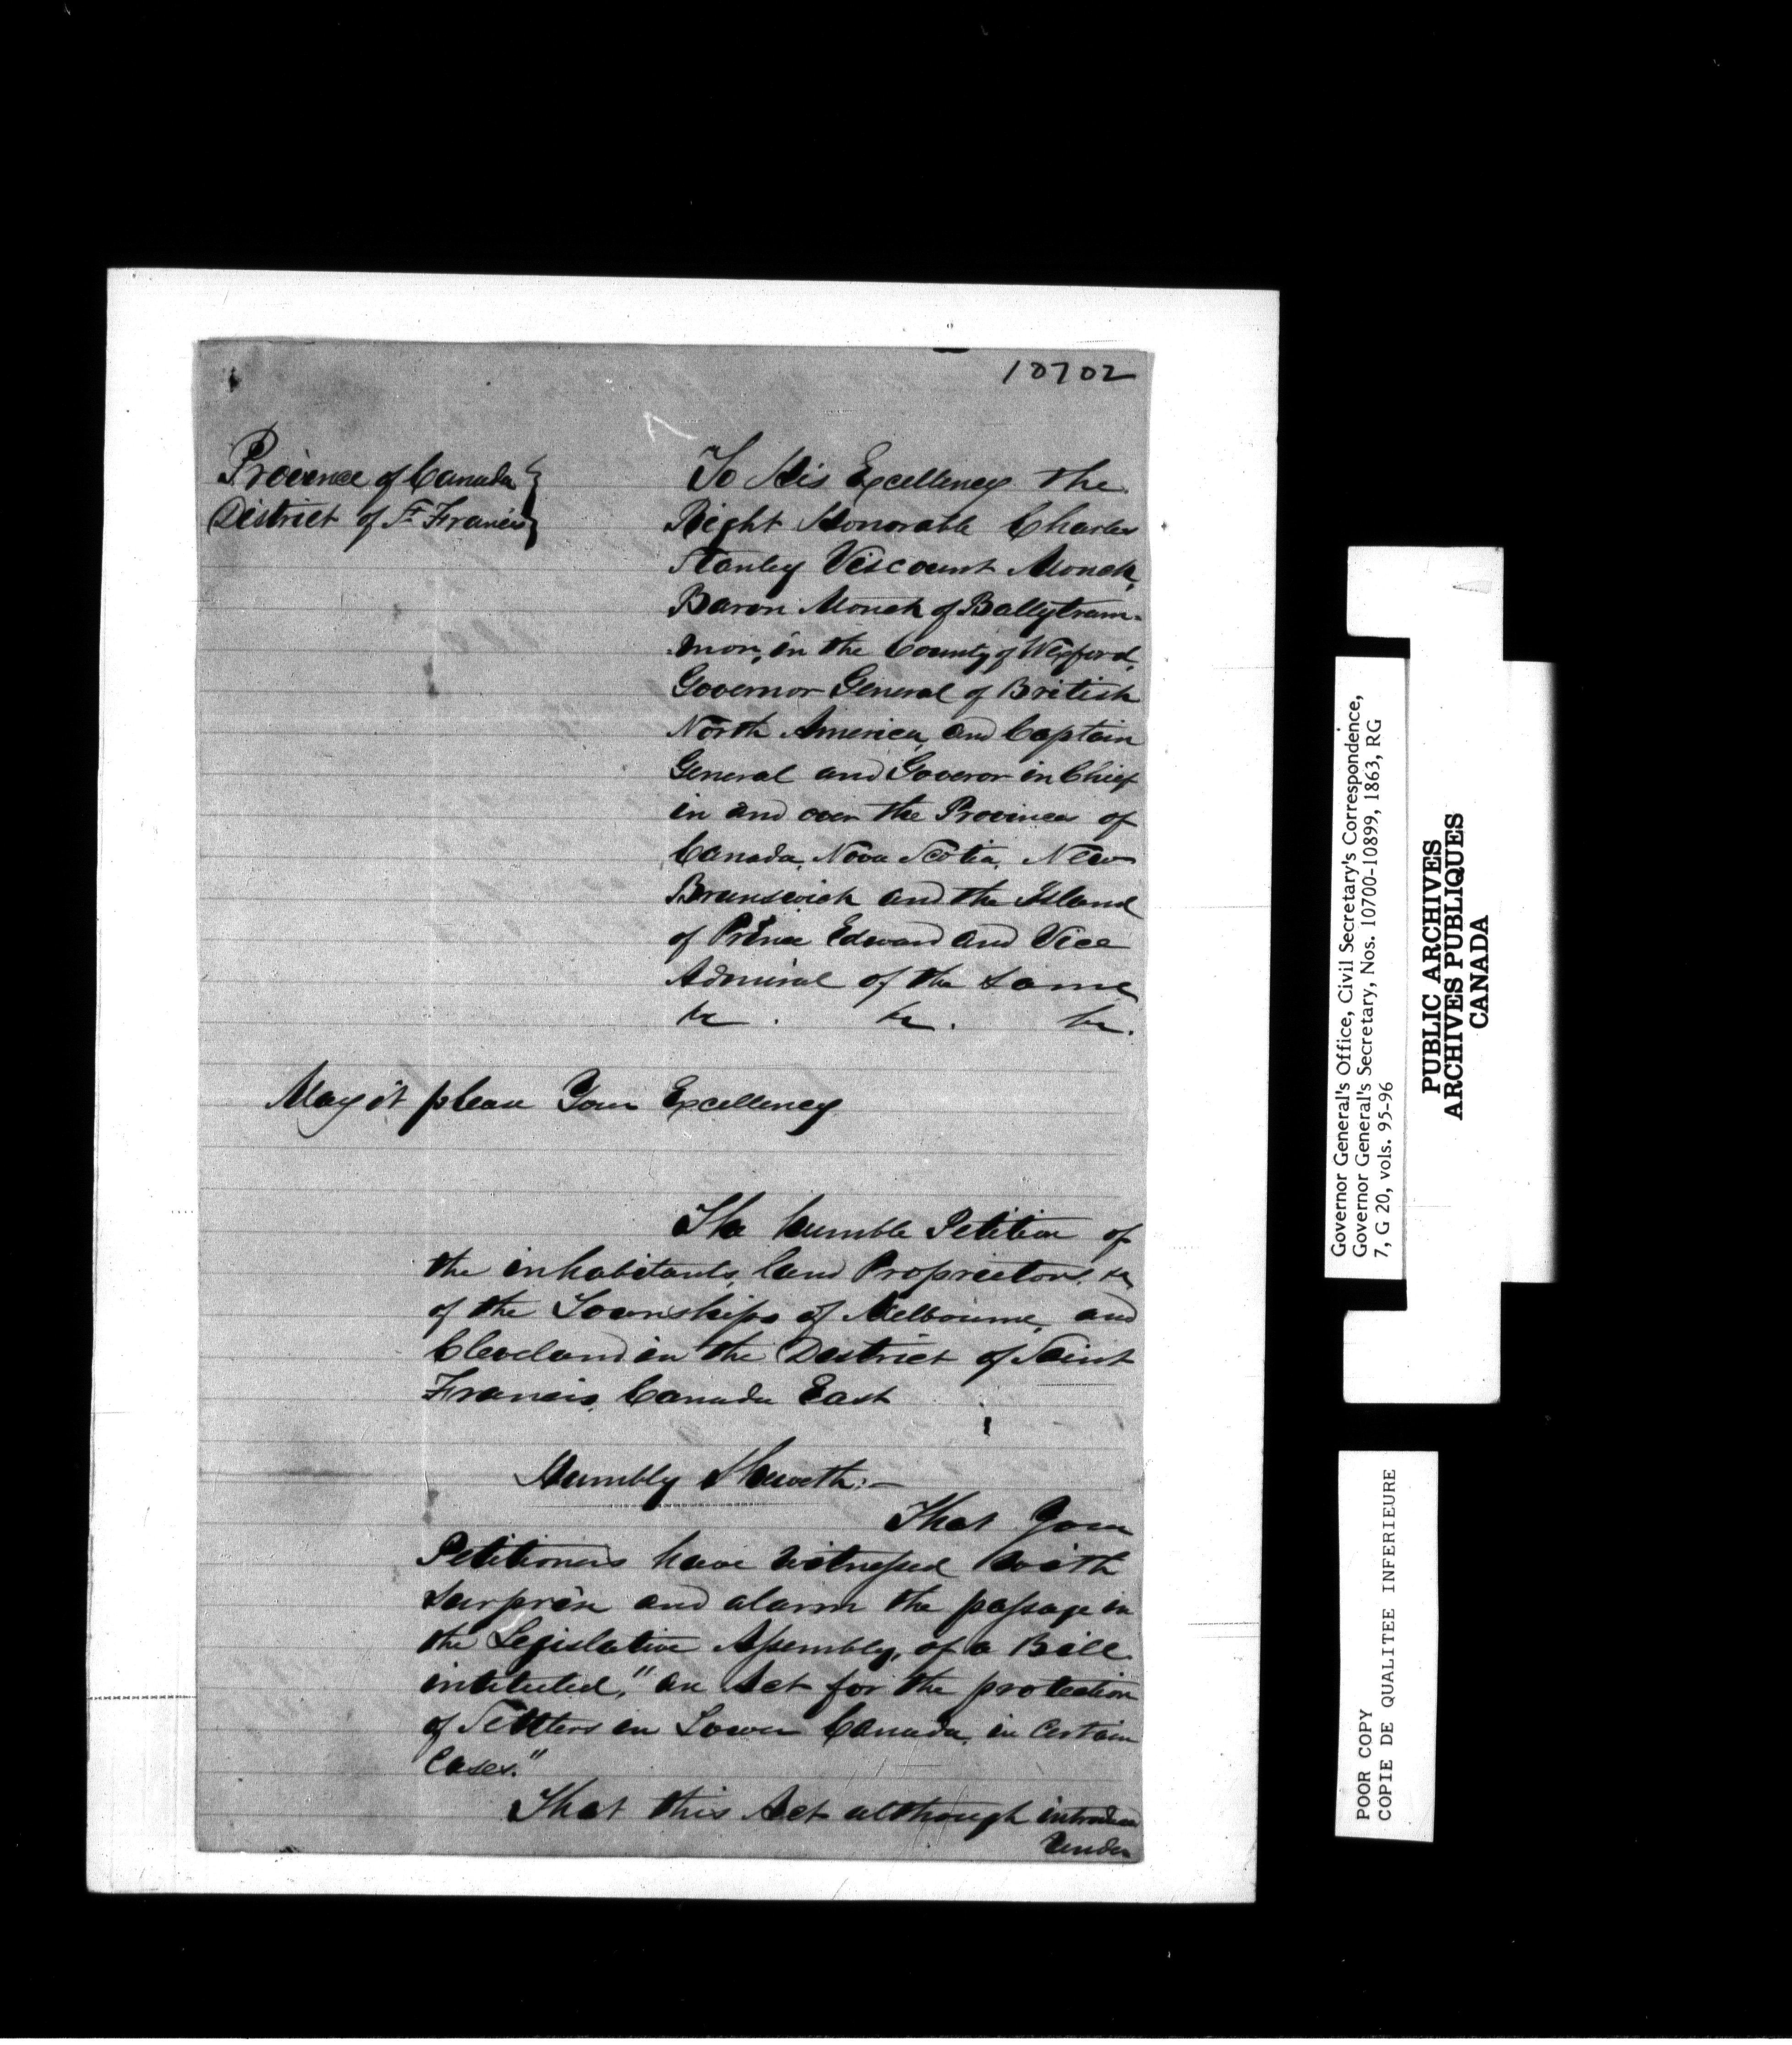 10702
Province of Canada }
District of St Francis }
To His Excellency the
Right Honorable Charles
Stanley Viscount Monck,
Baron Monck of Ballytram-
mon, in the County of Wexford,
Governor General of British
North America, and Captain
General and Goveror in Chief
in and over the Provinces of
Canada, Nova Scotia, New
Brunswick and the Island
of Prince Edward and Vice
Admiral of the same
&c. &c. &c.
May it please Your Excellency
The humble Petition of
the inhabitants, land Proprietors, &c
of the Townships of Melbourne, and
Cleveland in the District of Saint
Francis, Canada East
Humbly Sheweth:—
That Your
Petitioners have witnessed with
surprise and alarm the passage in
the Legislative Assembly, of a Bill
intituled, "an Act for the protection
of Settlers in Lower Canada, in Certain
Cases."
That this Act although introduced
under
Governor General's Office, Civil Secretary's Correspondence,
Governor General's Secretary, Nos. 10700-10899, 1863, RG
7, G 20, vols. 95-96
PUBLIC ARCHIVES
ARCHIVES PUBLIQUES
CANADA
POOR COPY
COPIE DE QUALITEE INFERIEURE